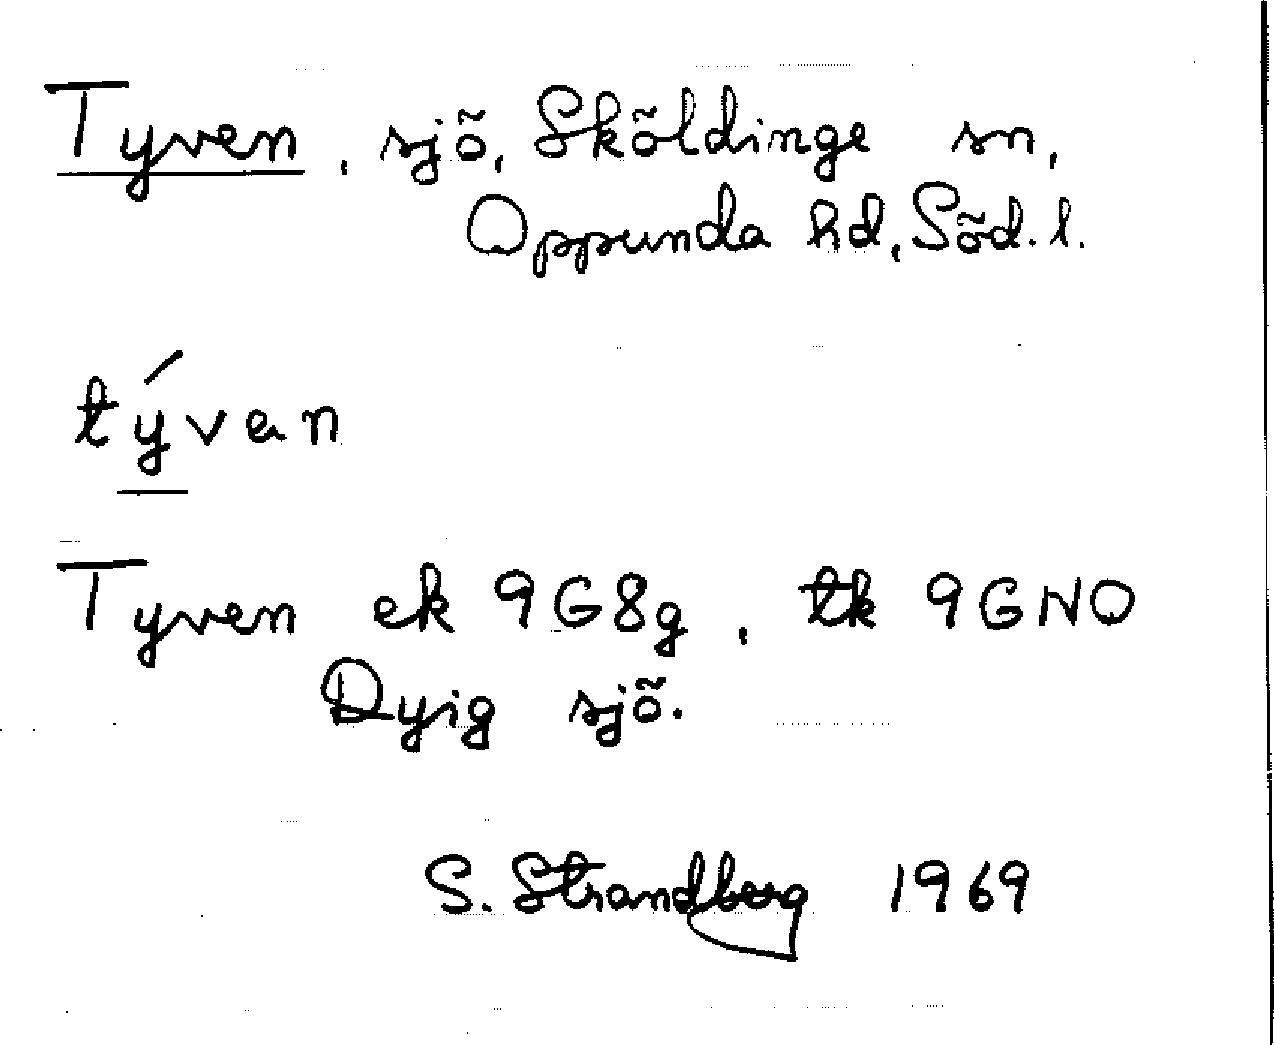 Tyven, sjö, Sköldinge sn,
Oppunda hd, Söd. l.
týven
Tyven ek 9G8g, tk 9GNO
Dyig sjö.
S. Strandberg 1969